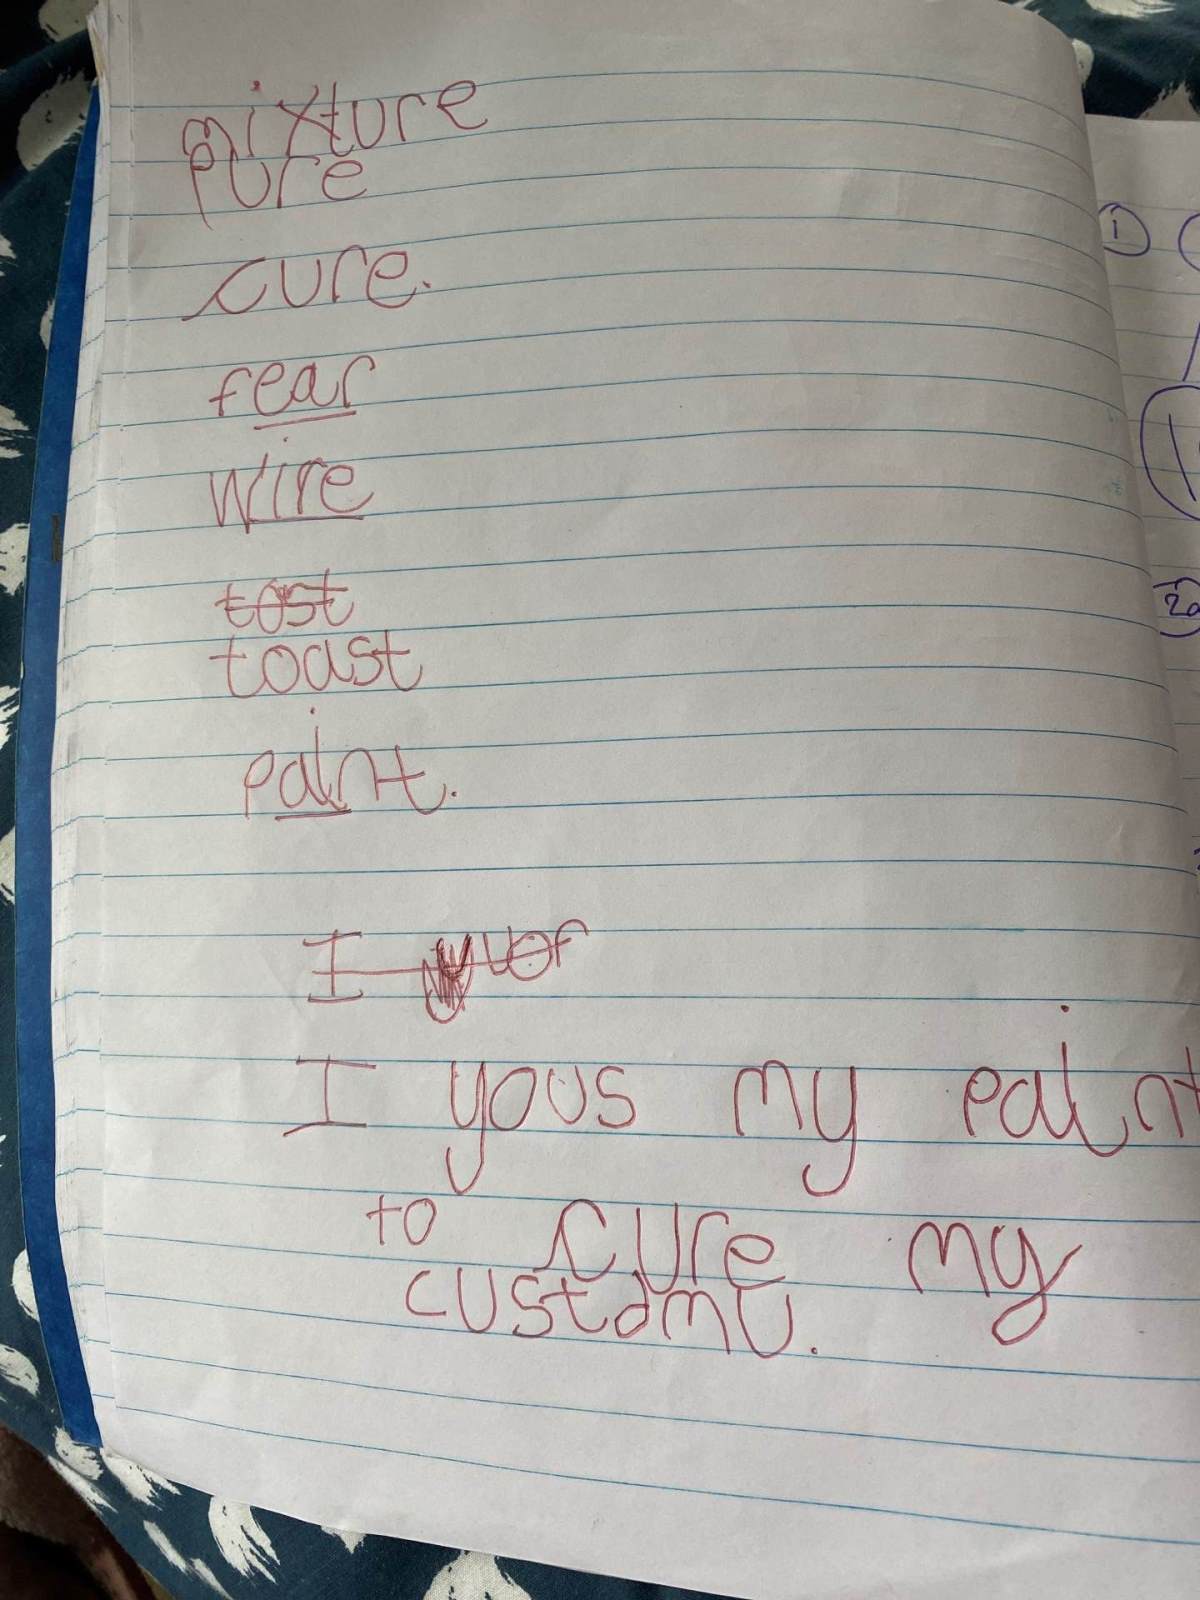 mixture
pure
cure.
fear
wire
tost
toast
paint.
I yuor
I yous my paint
to cure my
custamu.
1
2a